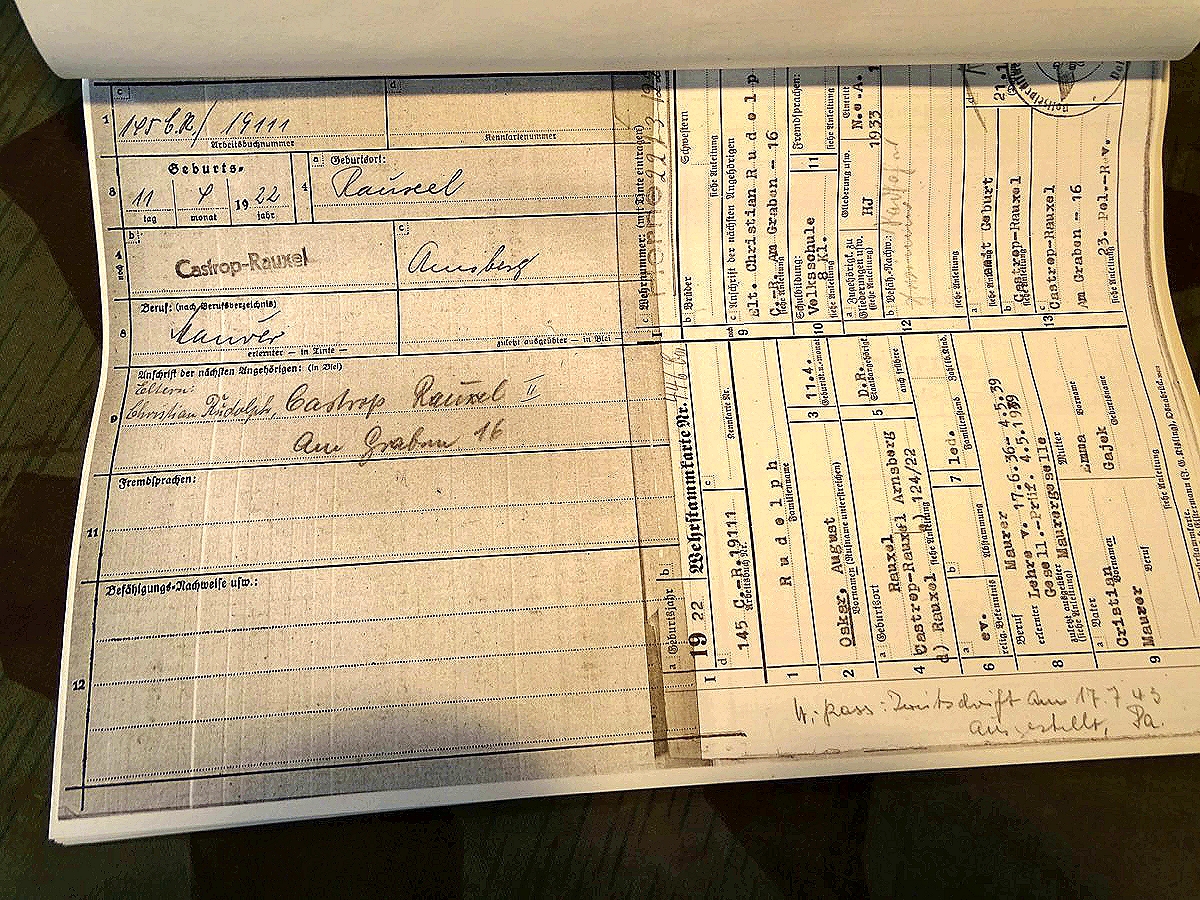 c
d
1
145 C.R/ 19111
Arbeitsbuchnummer
Kennkartennummer
Geburts-
a Geburtsort:
3
11 4 19 22
4
Rauxel
tag monat jahr
b
c
4
Castrop-Rauxel
Arnsberg
Beruf: (nach Berufsverzeichnis)
8
Maurer
erlernter — in Tinte —
zuletzt ausgeübter — in Blei —
Anschrift der nächsten Angehörigen: (in Blei)
Eltern:
9
Christian Rudolph, Castrop Rauxel II
Am Graben 16
Fremdsprachen:
11
Befähigungs-Nachweise usw.:
12
a Geburtsjahr
b
Wehrstammkarte Nr.
19 22
I
d
145 C.-R. 19111
Arbeitsbuch Nr.
c
Kennkarte Nr.
1
R u d o l p h
Familienname
2
Oskar, August
Vornamen (Rufname unterstreichen)
3
11.4.
Geburtst. u. monat
a Geburtsort
4
Rauxel
Castrop-Rauxel Arnsberg
d) Rauxel
siehe Anleitung
e) 124/22
5
D.R.
Staatsangehörigk.
auch frühere
a
6
ev.
relig. Bekenntnis
b
Abstammung
7
led.
Familienstand
Zahl d. Kind.
Beruf
Maurer
erlernter
Lehre v. 17.6.36- 4.5.39
8
Gesell.-Prüf. 4.5.1939
zuletzt ausgeübter
Maurergeselle
(siehe Anleitung)
a Vater
Mutter
Cristian
Emma
Vornamen
Vorname
9
Maurer
Gajek
Beruf
Geburtsname
siehe Anleitung
c Wehrnummer: (mit Tinte eintragen)
Herne
b Brüder
Schwestern
siehe Anleitung
noch
9
c Anschrift der nächsten Angehörigen
Elt. Christian R u d o l p
C.-R. Am Graben - 16
siehe Anleitung
10
Schulbildung:
Volksschule
8 Kl.
11
Fremdsprachen:
siehe Anleitung
a Zugehörigk. zu
Gliederungen usw.
(siehe Anleitung)
Gliederung usw.
HJ
N.o.A.
1933
12
b Befäh. Nachw.:
siehe Anleitung
a
seit Geburt
b
Castrop-Rauxel
13
c
Castrop-Rauxel
Am Graben - 16
23. Pol.-Rev.
d
21.1
W. Pass: Zweitschrift am 17.7.43
ausgestellt,